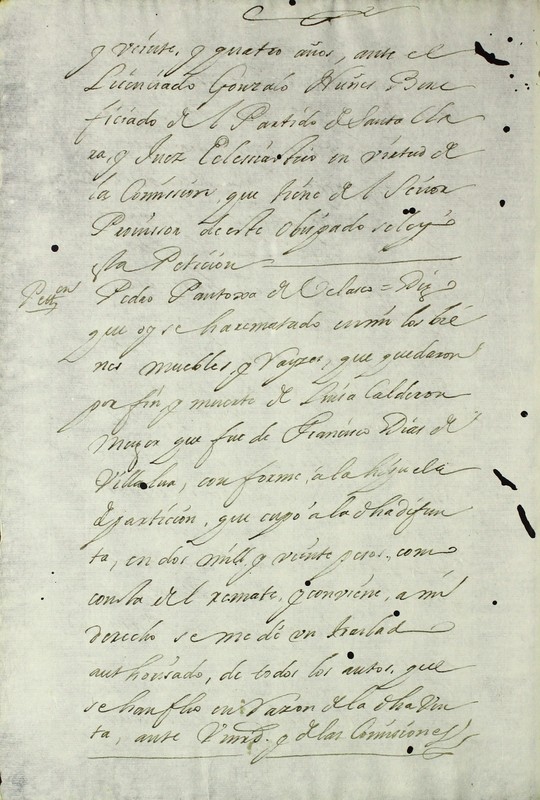 y veinte, y quatro años, ante el
Licenciado Gonzalo Nuñes Bene
ficiado de el Partido de Santa Cla
ra, y Juez Eclesiastico en virtud de
la Comission, que tiene de el Señor
Provissor de este Obispado se leyó
esta Peticion
Pettⁿ
Pedro Pantoxa de Velasco = Digo
que oy se ha rematado en mi los bie
nes muebles, y rayzes, que quedaron
por fin, y muerte de Luisa Calderon
Muger que fue de Francisco Dias de
Villalua, conforme, a la hijuela
de particion, que cupó a la dha difun
ta, en dos mill, y veinte pesos, como
consta de el remate, y conviene, a mi
derecho se me dé un traslado
authorisado, de todos los autos, que
se han fho en razon de la dha Ven
ta, ante Vmrd. y de las Comisiones